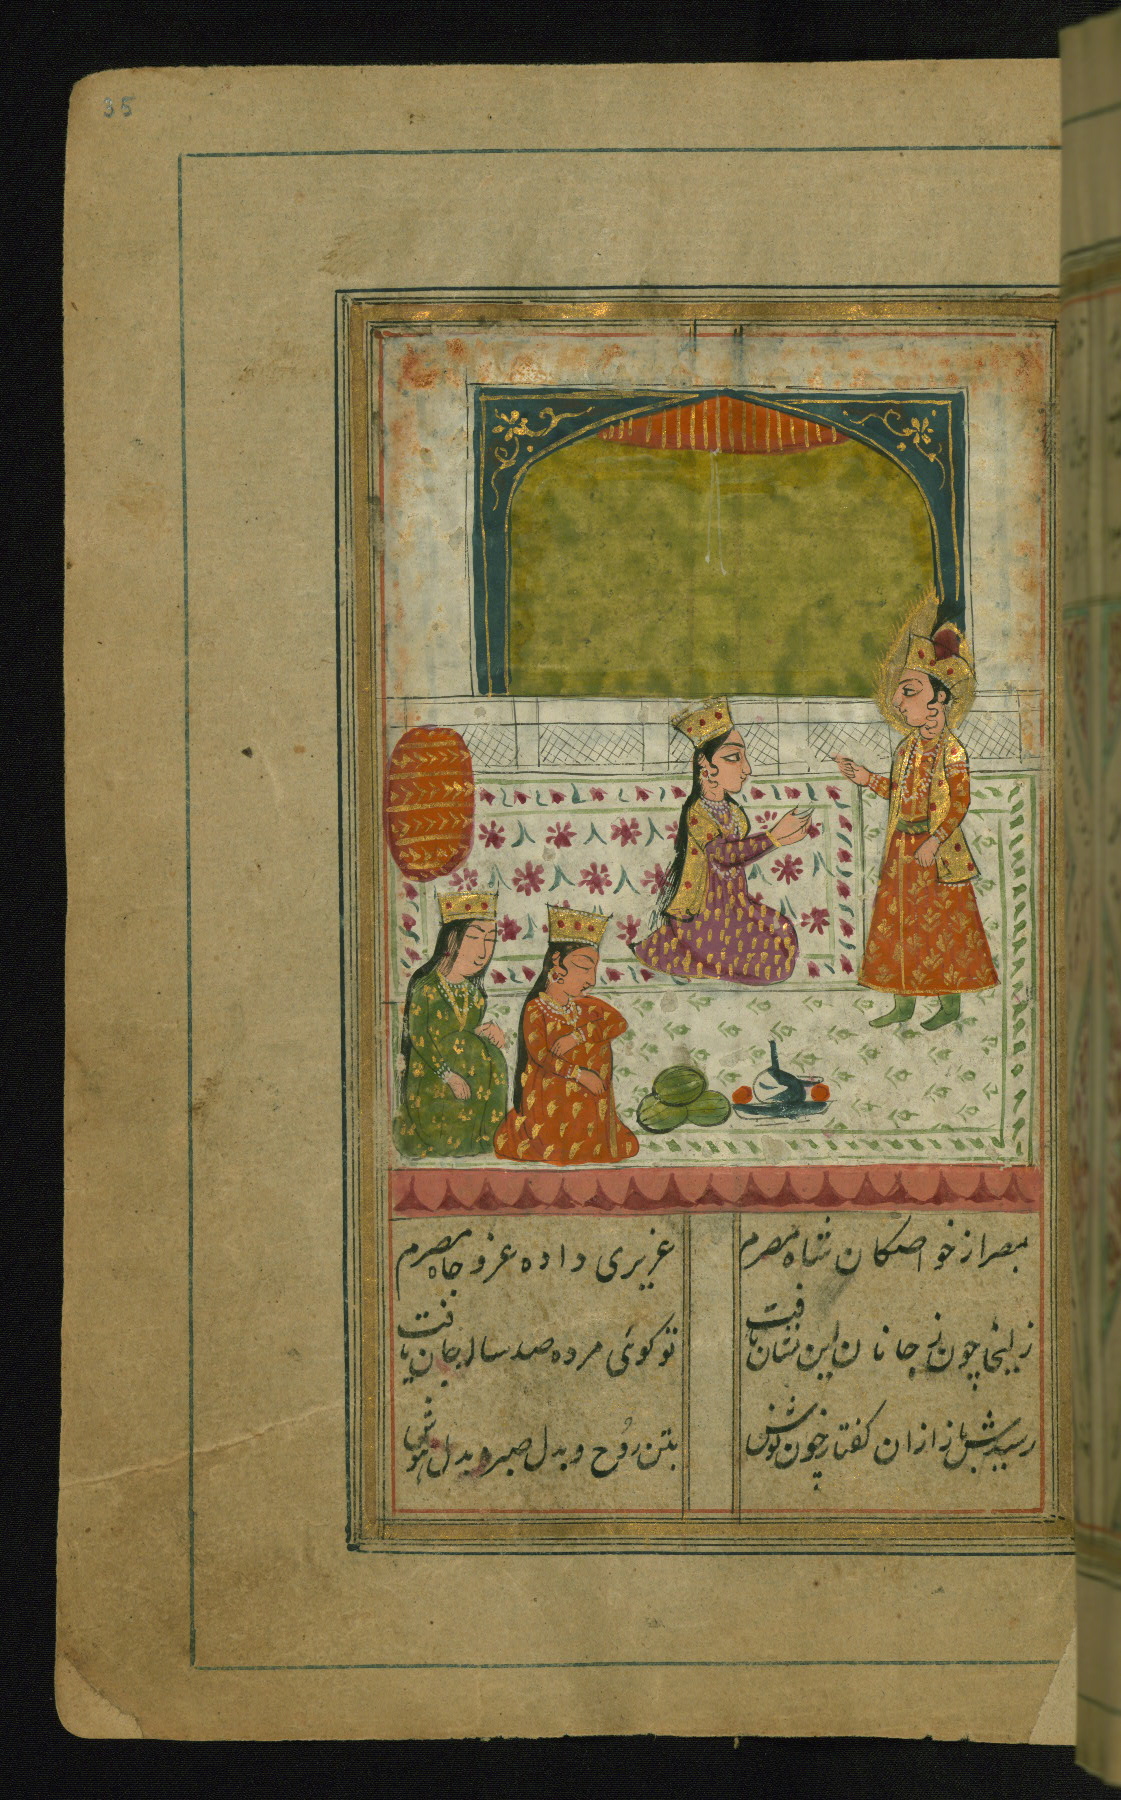 35
بمصر از خواصکان شاه مصرم
عزیزی داده عز و جاه مصرم
زلیخا چون ز جانان این نشان یافت
تو کوئی مرده صد ساله جان یافت
رسیدش باز ازان کفتار چون نوش
بتن روح و بدل صبر و بدل هوش